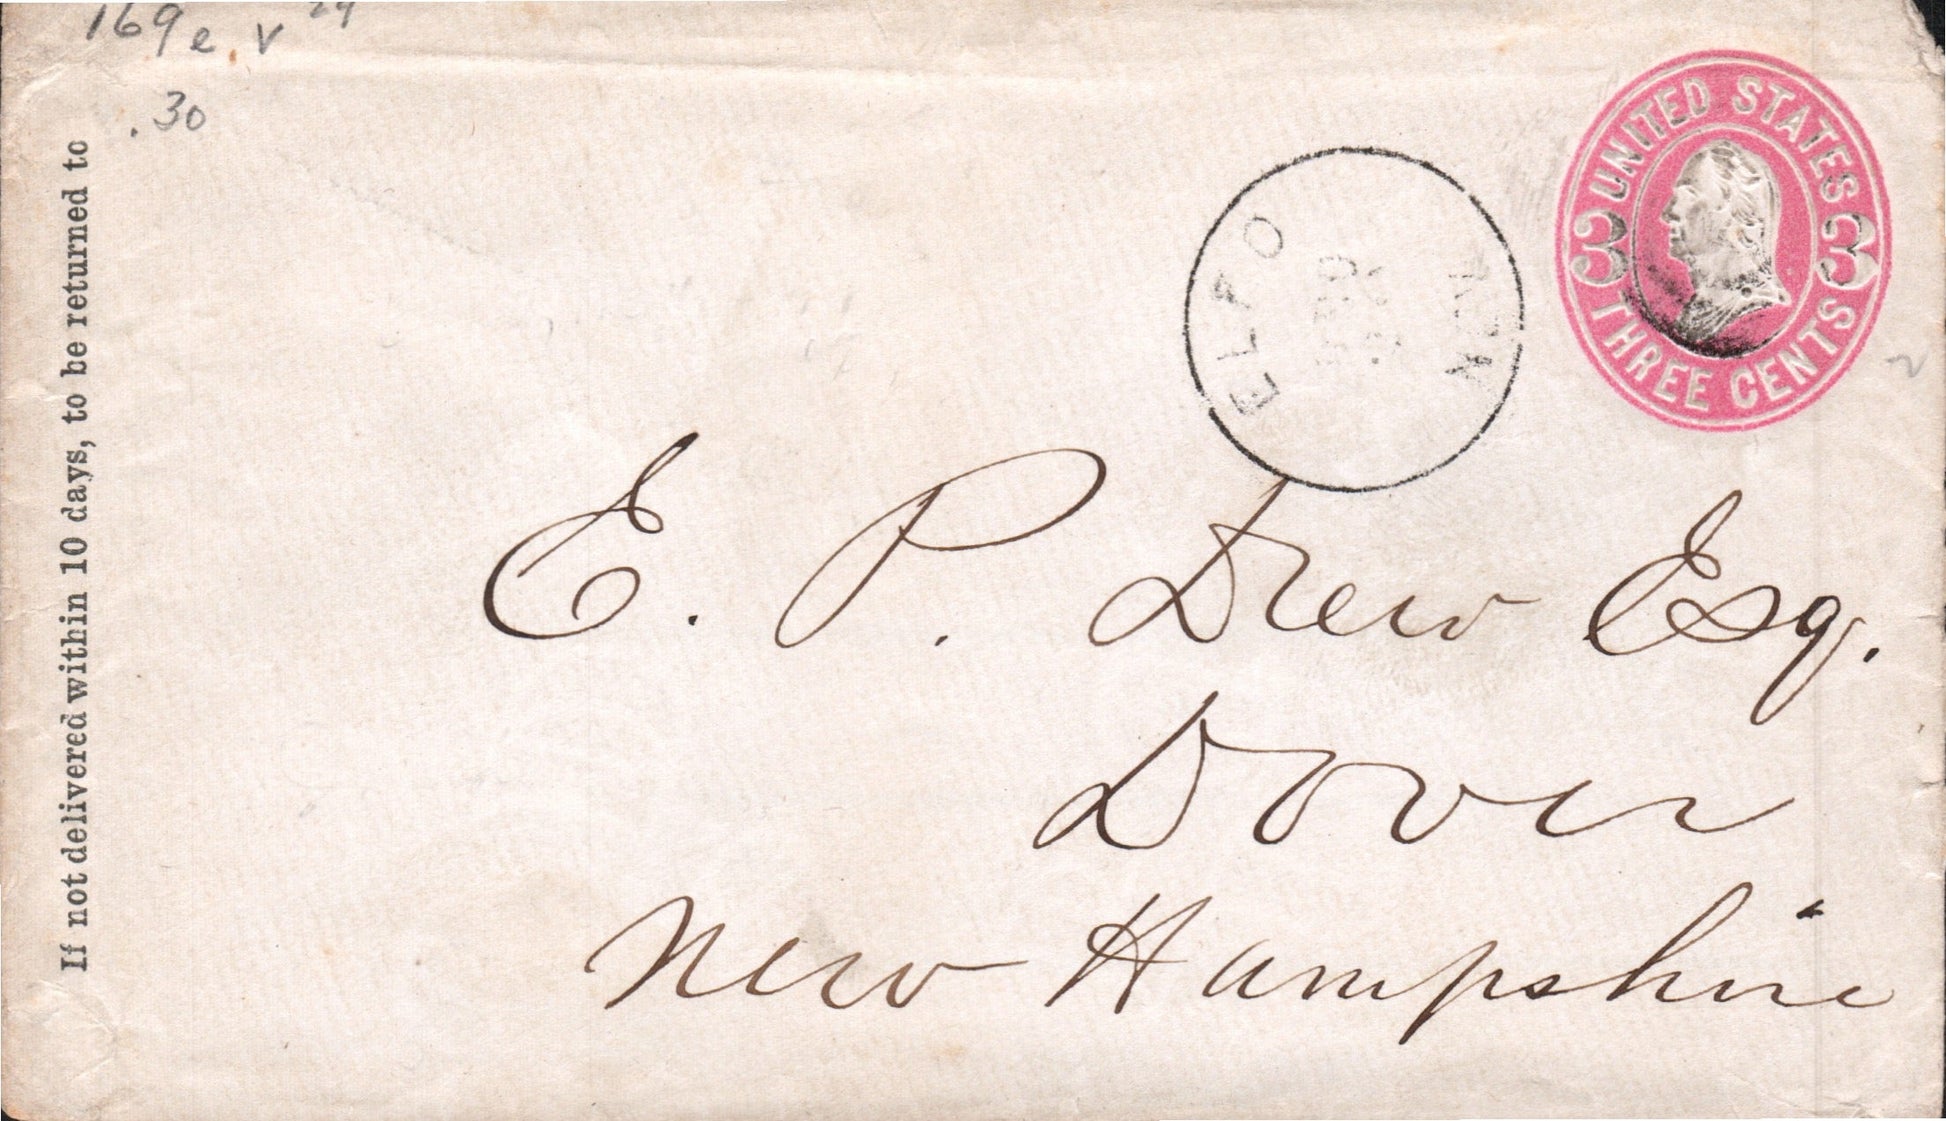 169 e v 24
.30
If not delivered within 10 days, to be returned to
UNITED STATES
3 3
THREE CENTS
E. P. Drew Esq.
Dover
New Hampshire